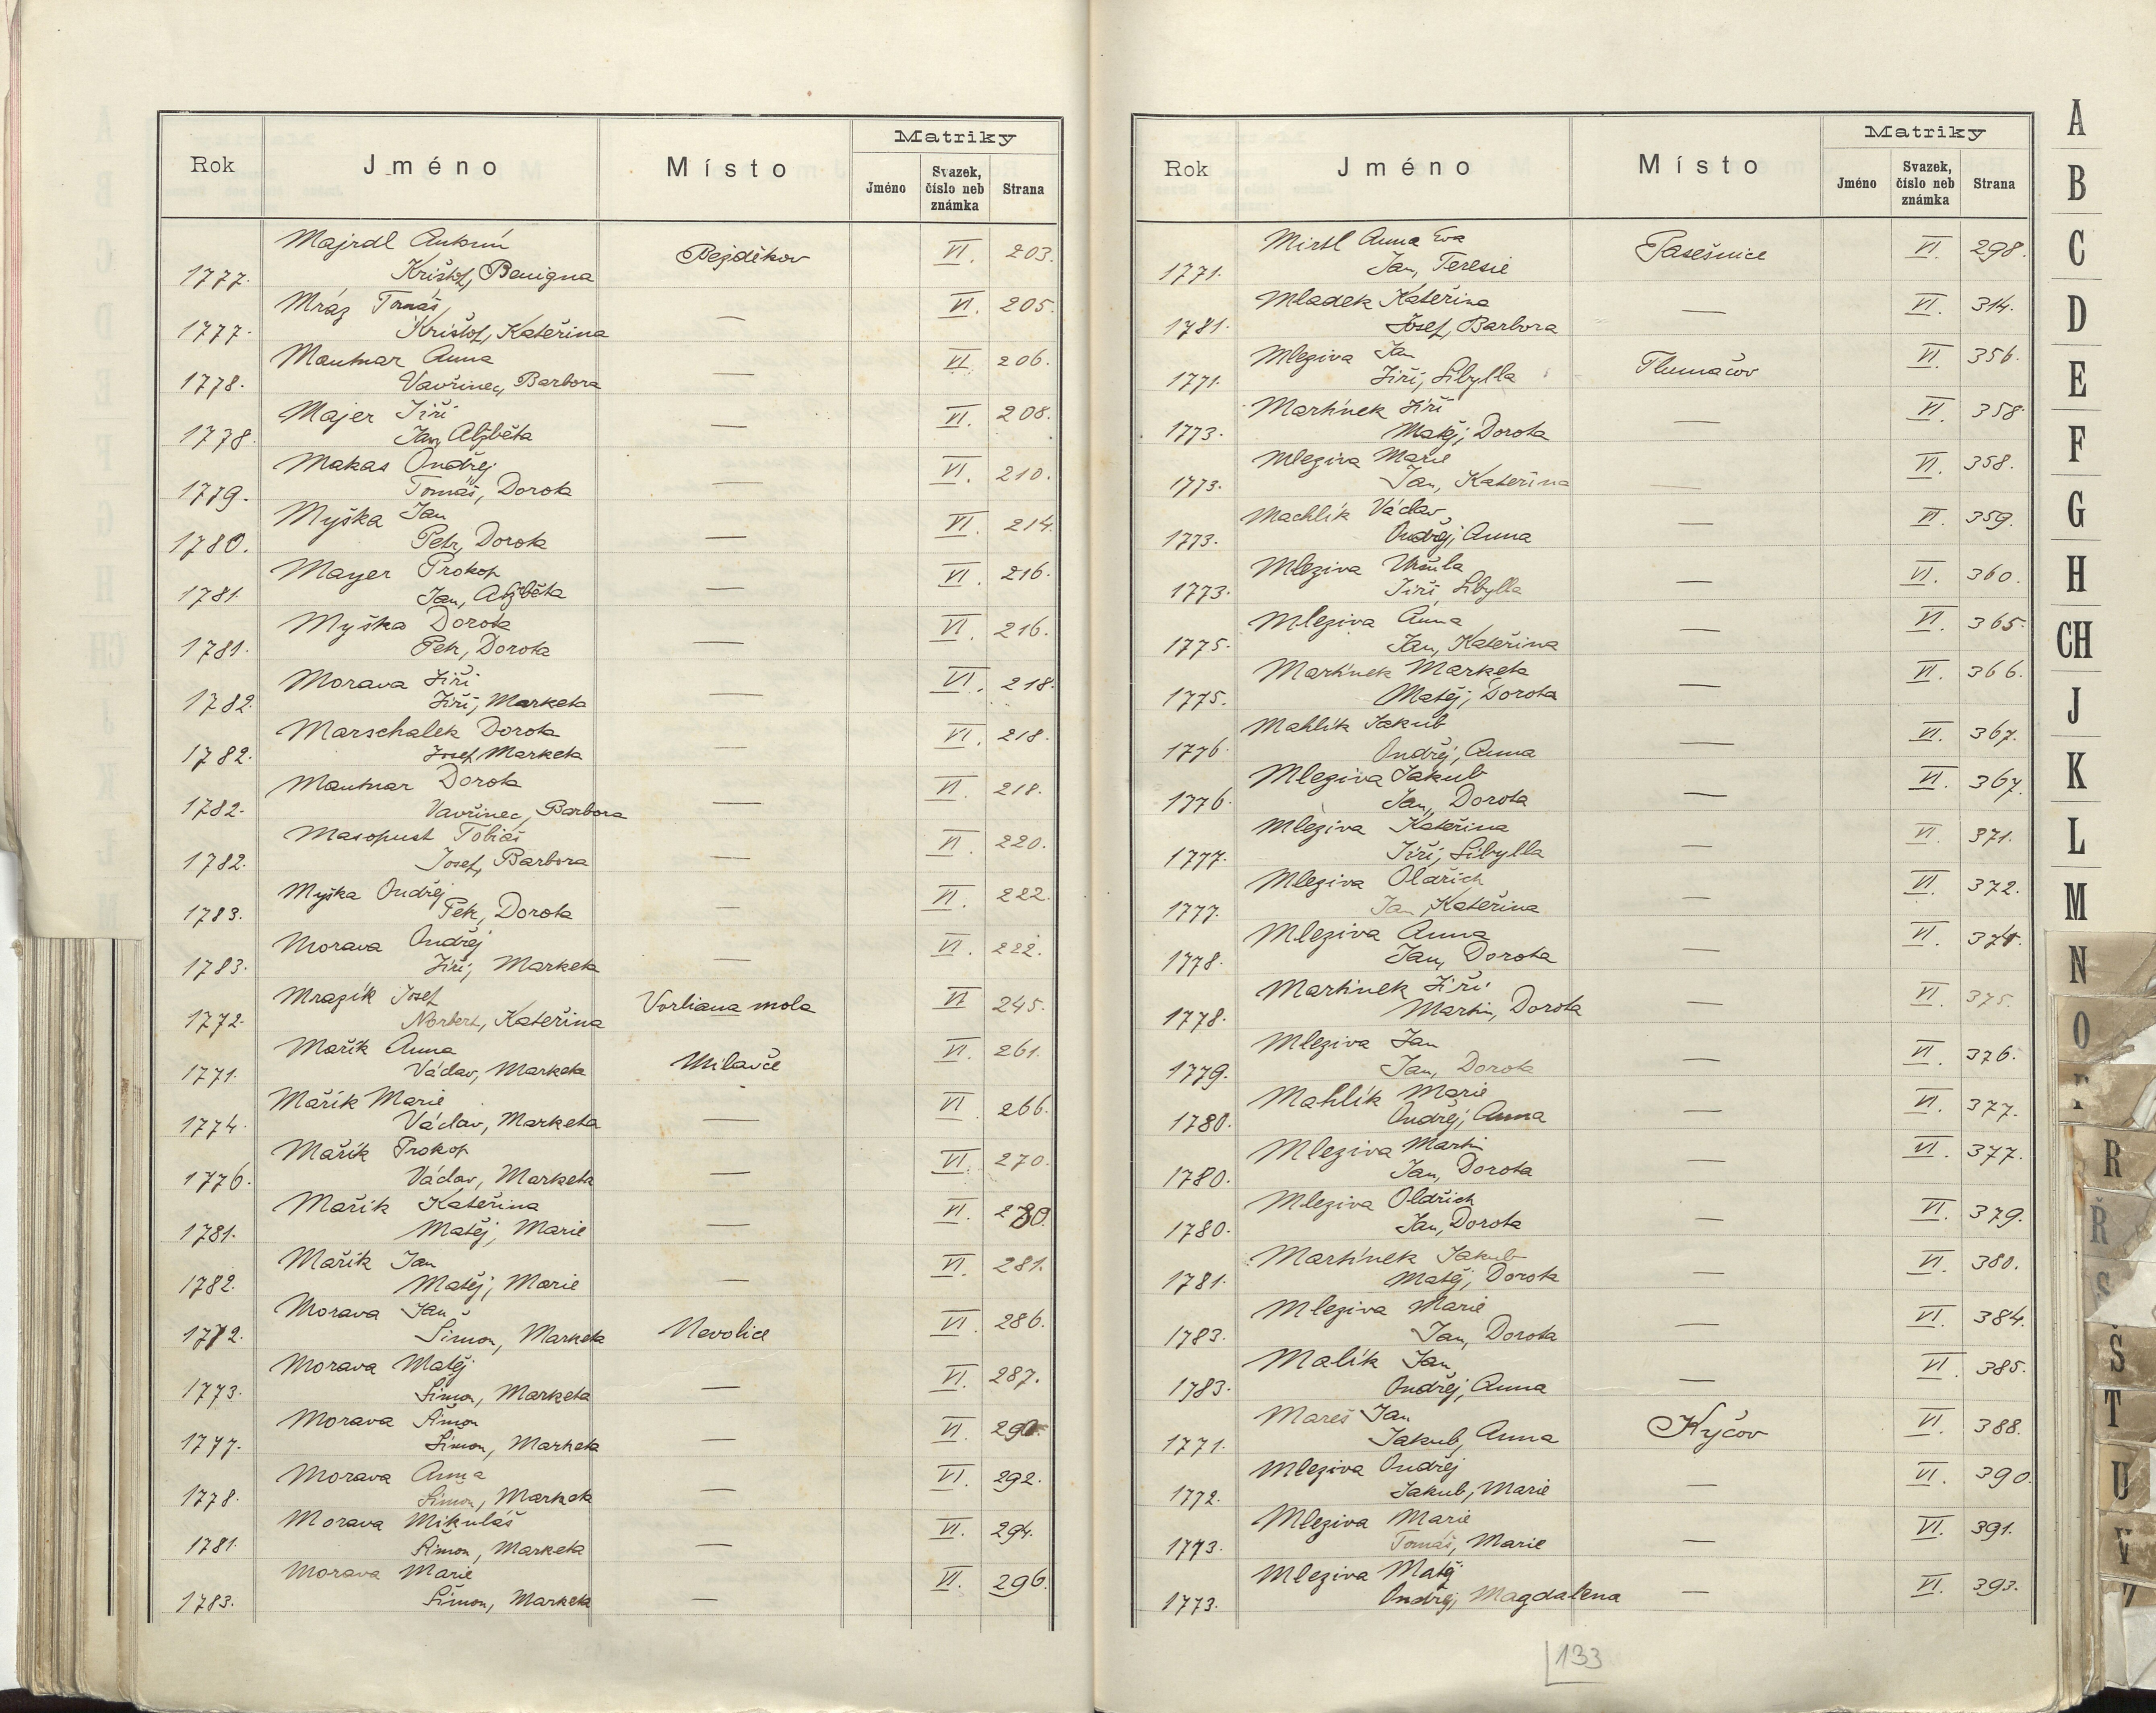 Rok Jméno Místo Matriky
Jméno Svazek, číslo neb známka Strana
Majrdl Antonín
1777. Krištof, Benigna Pejděkov VI. 203.
Mráz Tomáš,
1777. Krištof, Kateřina — VI. 205.
Mautnar Anna
1778. Vavřinec, Barbora — VI. 206.
Majer Jiří
1778. Jan, Alžběta — VI. 208.
Makas Ondřej
1779. Tomáš, Dorota — VI. 210.
Myška Jan
1780. Petr, Dorota — VI. 214.
Mayer Prokop
1781. Jan, Alžběta — VI. 216.
Myška Dorota
1781. Petr, Dorota — VI. 216.
Morava Jiří
1782. Jiří, Marketa — VI. 218.
Marschalek Dorota
1782. Josef, Marketa — VI. 218.
Mautnar Dorota
1782. Vavřinec, Barbora — VI. 218.
Masopust Tobiáš
1782. Josef, Barbora — VI. 220.
Myška Ondřej
1783. Petr, Dorota — VI. 222.
Morava Ondřej
1783. Jiří, Marketa — VI. 222.
Mrazík Josef
1772. Norbert, Kateřina Vorliana mola VI 245.
Mařík Anna
1771. Václav, Marketa Milavče VI. 261.
Mařík Marie
1774. Václav, Marketa — VI. 266.
Mařík Prokop
1776. Václav, Marketa — VI. 270.
Mařík Kateřina
1781. Matěj, Marie — VI. 280.
Mařík Jan
1782. Matěj, Marie — VI. 281.
Morava Jan
1772. Šimon, Marketa Nevolice VI. 286.
Morava Matěj
1773. Šimon, Marketa — VI. 287.
Morava Šimon
1777. Šimon, Marketa — VI. 290.
Morava Anna
1778. Šimon, Marketa — VI. 292.
Morava Mikuláš
1781. Šimon, Marketa — VI. 294.
Morava Marie
1783. Šimon, Marketa — VI. 296.
Rok Jméno Místo Matriky
Jméno Svazek, číslo neb známka Strana
Mirtl Anna Eva
1771. Jan, Teresie Pasešnice VI. 298.
Mladek Kateřina
1781. Josef, Barbora — VI. 314.
Mleziva Jan
1771. Jiří, Sibylla Tlumačov VI. 356.
Martínek Jiří
1773. Matěj, Dorota — VI. 358.
Mleziva Marie
1773. Jan, Kateřina — VI. 358.
Machlík Václav
1773. Ondřej, Anna — VI. 359.
Mleziva Uršula
1773. Jiří Sibylla — VI. 360.
Mleziva Anna
1775. Jan, Kateřina — VI. 365.
Martínek Marketa
1775. Matěj, Dorota — VI. 366.
Mahlík Jakub
1776. Ondřej, Anna — VI. 367.
Mleziva Jakub
1776. Jan, Dorota — VI. 367.
Mleziva Kateřina
1777. Jiří, Sibylla — VI. 371.
Mleziva Oldřich
1777. Jan, Kateřina — VI. 372.
Mleziva Anna
1778. Jan, Dorota — VI.
Martínek Jiří
1778. Martin, Dorota — VI. 375.
Mleziva Jan
1779. Jan, Dorota — VI. 376.
Mahlík Marie
1780. Ondřej, Anna — VI. 377.
Mleziva Martin
1780. Jan, Dorota — VI. 377.
Mleziva Oldřich
1780. Jan, Dorota — VI. 379.
Martínek Jakub
1781. Matěj, Dorota — VI. 380.
Mleziva Marie
1783. Jan, Dorota — VI. 384.
Malík Jan
1783. Ondřej, Anna — VI. 385.
Mareš Jan
1771. Jakub, Anna Kyčov VI. 388.
Mleziva Ondřej
1772. Jakub, Marie — VI. 390.
Mleziva Marie
1773. Tomáš, Marie — VI. 391.
Mleziva Matěj
1773. Ondřej, Magdalena — VI. 393.
133
A
B
C
D
E
F
G
H
CH
J
K
L
M
N
O
R
Ř
S
Š
T
U
V